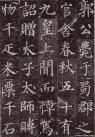 公薨于蜀郡
官舍春秋五十有
九皇上聞而悼焉
詔贈太子太師賻
物千疋米粟千石